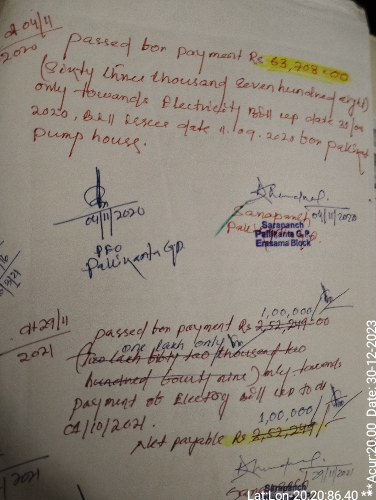 dt 04/11
2020
passed bor payment Rs 63,708=00
(Sixty three thousand seven hundred eight)
only towards Electricity Bill up date 30/09
2020, Bill Issue date 11.09.2020 bor palikanta
pump house.
04/11/2020
PEO
Palikanta GP.
04/11/2020
Sarapanch
Sarapanch
Pallikanta G.P.
Erasama Block
dt 29/11
2021
1,00,000/
passed bor payment Rs 2,52,249=00
one lakh only
(Two lakh fifty two thousand two
hundred fourty nine) only towards
payment of Electory bill up to dt
01/10/2021.
1,00,000/
Net payable Rs 2,52,249/
29/11/2021
Sarapanch
Lat:Lon-20.20:86.40 **Acur:20.00 Date: 30-12-2023